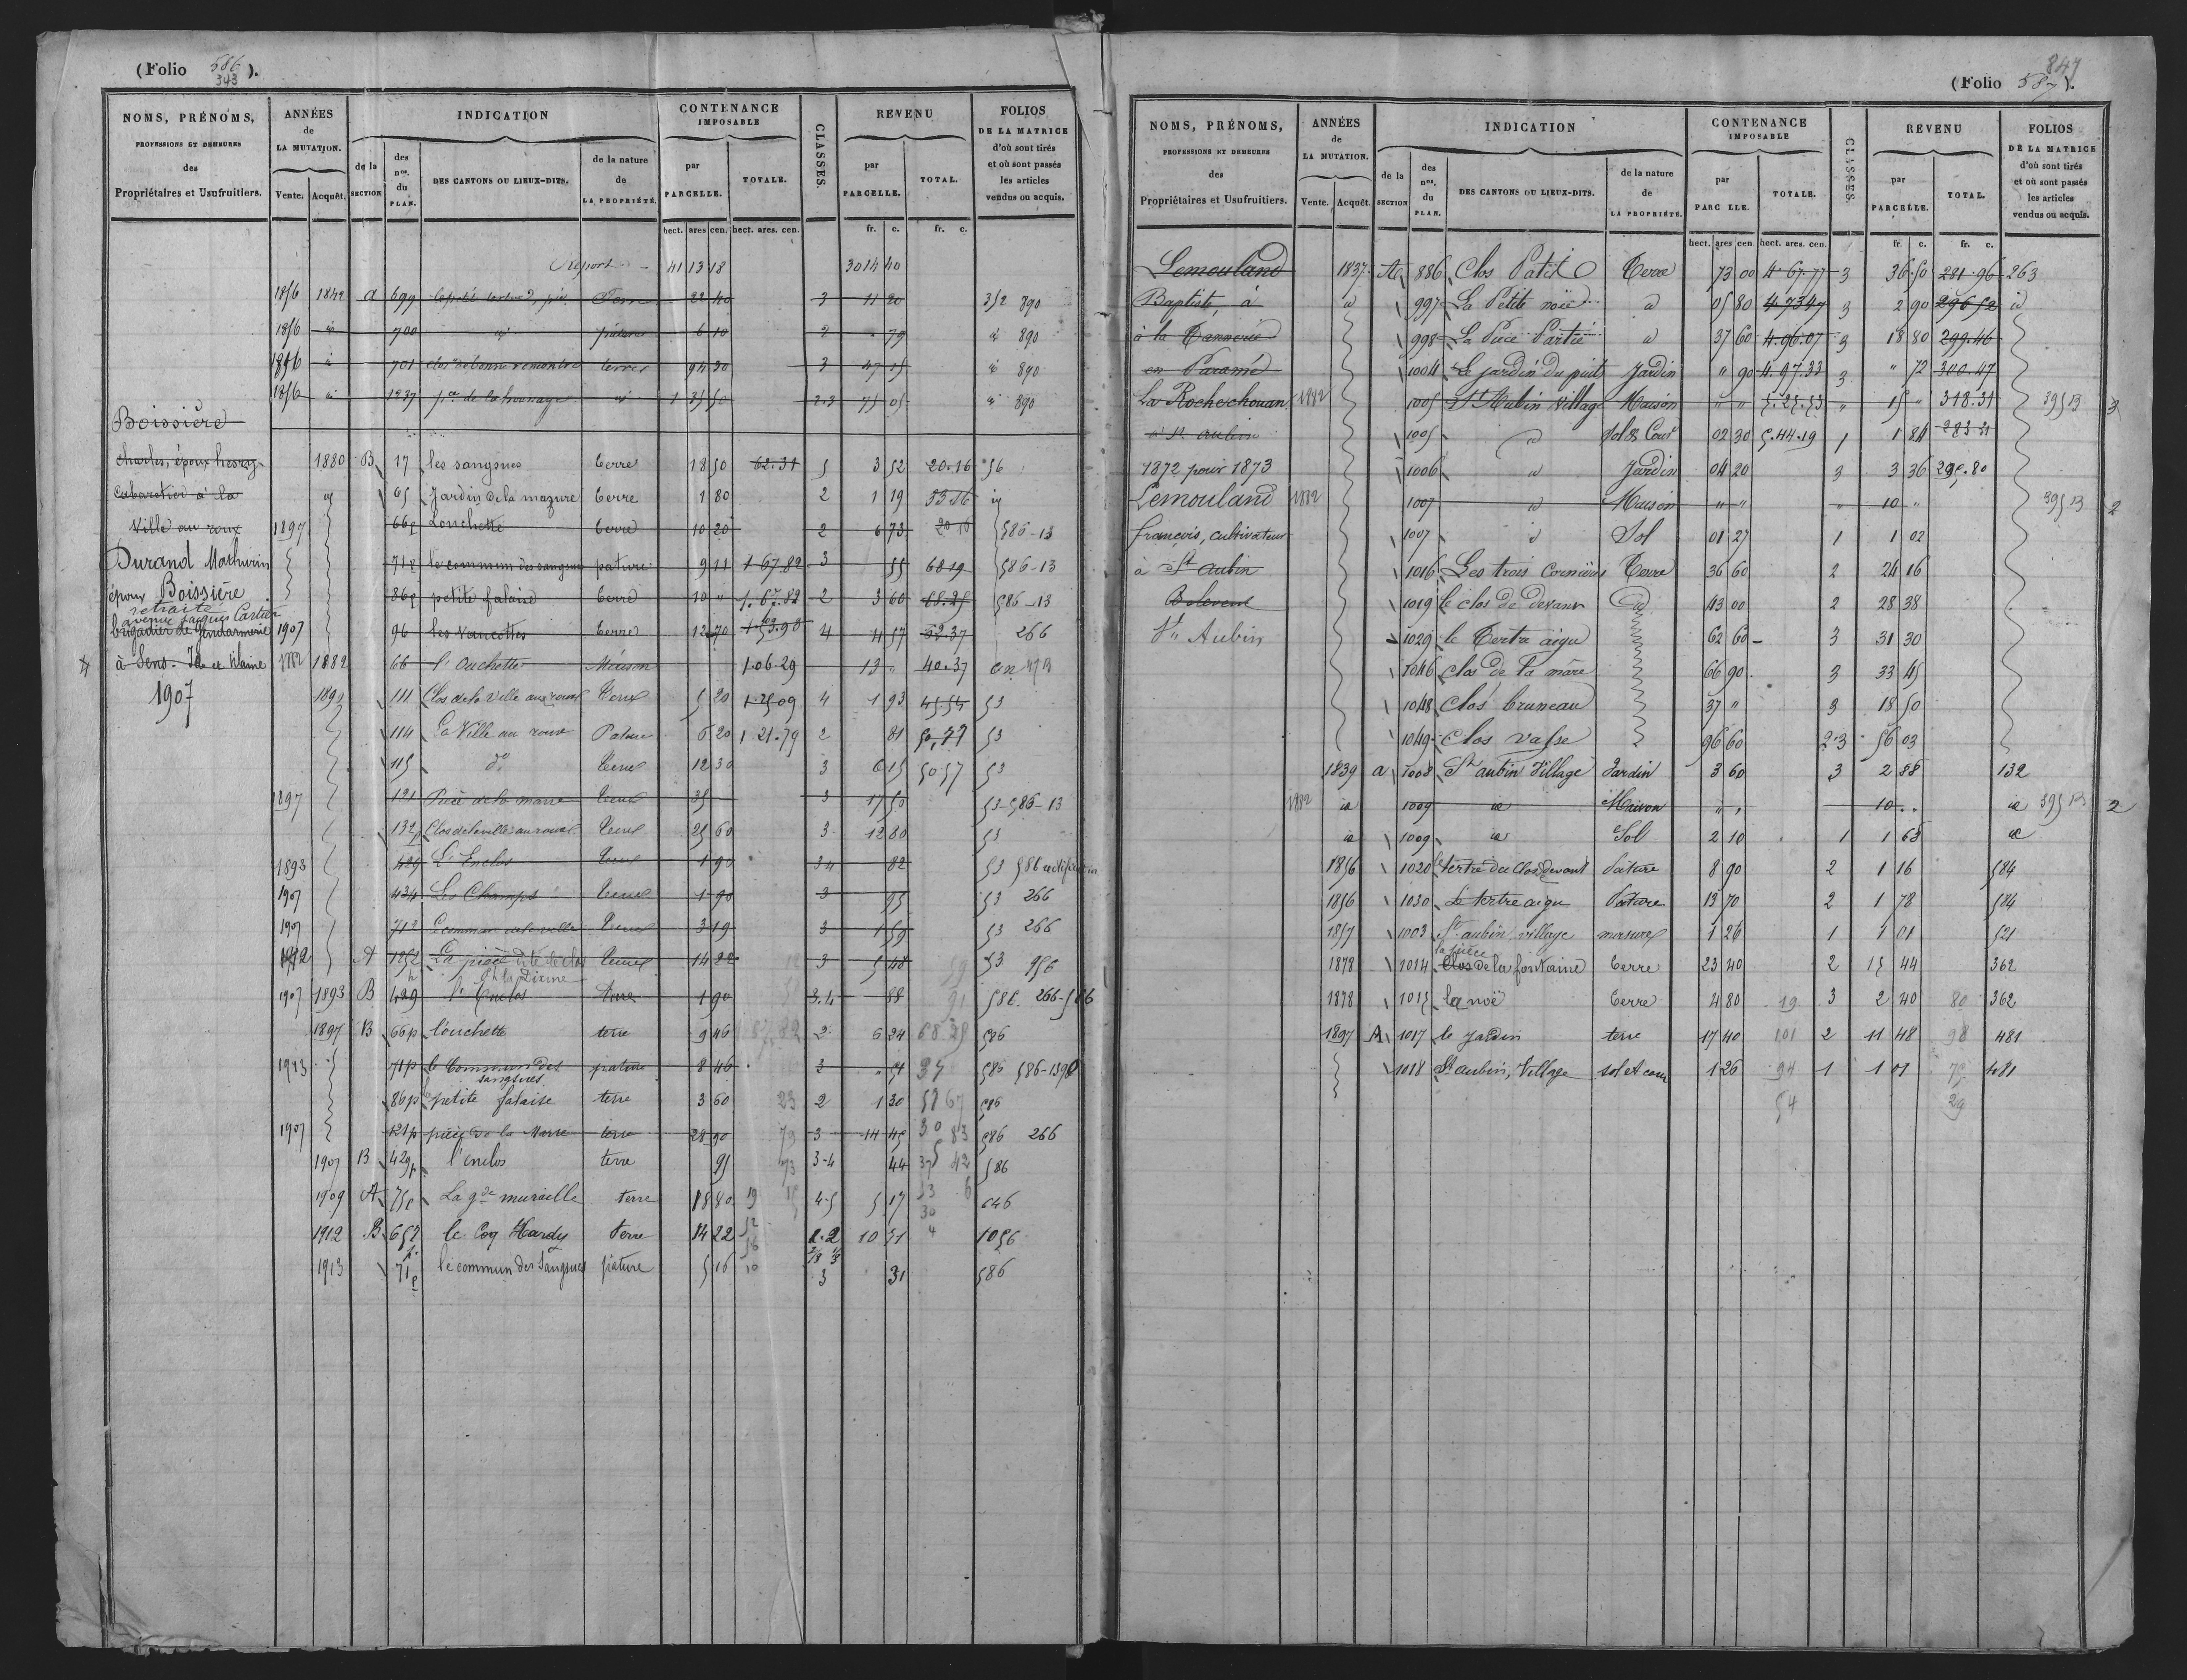 (Folio 586).
343
NOMS, PRÉNOMS, PROFESSIONS ET DEMEURES des Propriétaires et Usufruitiers.
ANNÉES de LA MUTATION. Vente. Acquêt.
INDICATION
de la SECTION
des nos. du PLAN.
DES CANTONS OU LIEUX-DITS.
de la nature de LA PROPRIÉTÉ.
CONTENANCE IMPOSABLE
par PARCELLE. TOTALE.
CLASSES.
REVENU
par PARCELLE. TOTAL.
FOLIOS DE LA MATRICE d'où sont tirés et où sont passés les articles vendus ou acquis.
hect. ares cen. hect. ares. cen. fr. c. fr. c.
Report 41 13 18 3014 40
1856 1842 a 699 22 40 3 11 20 352 890
1856 id 700 id pature 6 10 2 " 79 id 890
1856 id 701 clos de bonne rencontre terres 94 30 3 47 15 id 890
1856 id 1237 id 1 35 50 2.3 75 05 id 890
Boissière
Charles, époux
cabaretier à la
Ville au roux
Durand Mathurin
époux Boissière
retraité
avenue Jacques Cartier
brigadier de Gendarmerie
à Sens. Ille et Vilaine
1907
1880 B 17 les sangsues terre 18 50 62.31 5 3 52 20.16 56
id 65 Jardin de la mazure terre 1 80 2 1 19 id
1897 66p Louchette terre 10 20 2 6 73 586-13
71p le commun des sangsues pature 9 11 1 67 82 3 55 68 19 586-13
86p petite falaise terre 10 " 1.67.82 2 3 60 68.25 586-13
1907 96 les Nancettes terre 12 70 4 4 57 266
1882 1882 66 l'Ouchette Maison 1.06.29 13 " 40.37
1890 111 Clos de la Ville au roux Terre 5 20 1 25 09 4 1 93 45 54 53
114 La Ville au roux Pature 6 20 1 21.79 2 81 50,77 53
115 do Terre 12 30 3 6 15 50 57 53
1897 121 Pièce de la marre Terre 35 3 17 50 53-586-13
132p Clos de la ville au roux Terre 25 60 3 12 80 53
1893 429 L'Enclos Terre 1 90 3 4 82 53 586
1907 434 Les Champs Terre 1 90 3 95 53 266
1907 712 Commun de la ville Terre 3 19 3 1 59 53 266
1912 A 1252 La pièce dite le clos Terre 14 22 3 5 48 53 956
1907 1893 B 429 l'Enclos Terre 1 90 3.4 88 586. 266-586
1897 B 66p l'ouchette terre 9 46 2 6 24 68 29 586
1913 71p le Commun des sangsues pature 8 46 3 " 51 586 586-1390
86p petite falaise terre 3 60 23 2 1 30 586
1907 121p pièce de la Marre terre 28 90 79 3 14 45 586 266
1907 B 429p l'enclos terre 95 73 3-4 44 586
1909 A 75p La gde muraille terre 18 80 4-5 5 17 646
1912 B 657p le Coq Hardy Terre 14 22 1.2 10 31 1056
1913 71p le commun des Sangsues pâture 5 16 3 31 586
847
(Folio 587).
NOMS, PRÉNOMS, PROFESSIONS ET DEMEURES des Propriétaires et Usufruitiers.
ANNÉES de LA MUTATION. Vente. Acquêt.
INDICATION
de la SECTION
des nos. du PLAN.
DES CANTONS OU LIEUX-DITS.
de la nature de LA PROPRIÉTÉ.
CONTENANCE IMPOSABLE
par PARC LLE. TOTALE.
CLASSES
REVENU
par PARCELLE. TOTAL.
FOLIOS DE LA MATRICE d'où sont tirés et où sont passés les articles vendus ou acquis.
hect. ares cen hect. ares. cen. fr. c. fr. c.
Lemouland
Baptiste, à
à la Tannerie
en Paramé
La Rochechouan
à St aubin
1872 pour 1873
Lemouland
françois, cultivateur
à St Aubin
St Aubin
1837 A 886 Clos Patit Terre 73 00 4 67.77 3 36.50 281.96 263
id 997 La Petite noë id 05 80 4 73 47 3 2 90 296 52 id
998 La Pièce Partie id 37 60 4.96.07 3 18 80 299.46
1004 Le jardin du puit Jardin " 90 4.97.33 3 " 72 300.47
1882 1005 St Aubin Village Maison " " 5.25.53 " 15 " 318.31 395 13 3
1005 id Sol & Cour 02 30 5.44.19 1 1 84 283 31
1006 id Jardin 04 20 3 3 36 295.80
1882 1007 id Maison " " " 10 " 395 13 2
1007 id Sol 01 27 1 1 02
1016 Les trois Cornières Terre 36 60 2 24 16
1019 le clos de devant id 43 00 2 28 38
1029 le Tertre aigu 62 60 3 31 30
1046 clos de la mare 66 90 3 33 45
1048 Clos bruneau 37 " 3 18 50
1049 clos vasse 96 60 2.3 56 03
1839 a 1008 St aubin Village Jardin 3 60 3 2 88 132
1882 id 1009 id Maison " " 10 " id 395 13 2
id 1009 id Sol 2 10 1 1 63 id
1856 1020 le tertre du Clos devant Pature 8 90 2 1 16 584
1856 1030 Le tertre aigu Pature 13 70 2 1 78 584
1857 1003 St aubin village masure 1 26 1 1 01 521
1878 1014 la pièce Clos de la fontaine terre 23 40 2 15 44 362
1878 1015 la noë terre 4 80 19 3 2 40 80 362
1897 A 1017 le Jardin terre 17 40 101 2 11 48 98 481
1018 St aubin, Village sol et cour 1 26 94 1 1 01 75 481
54 29